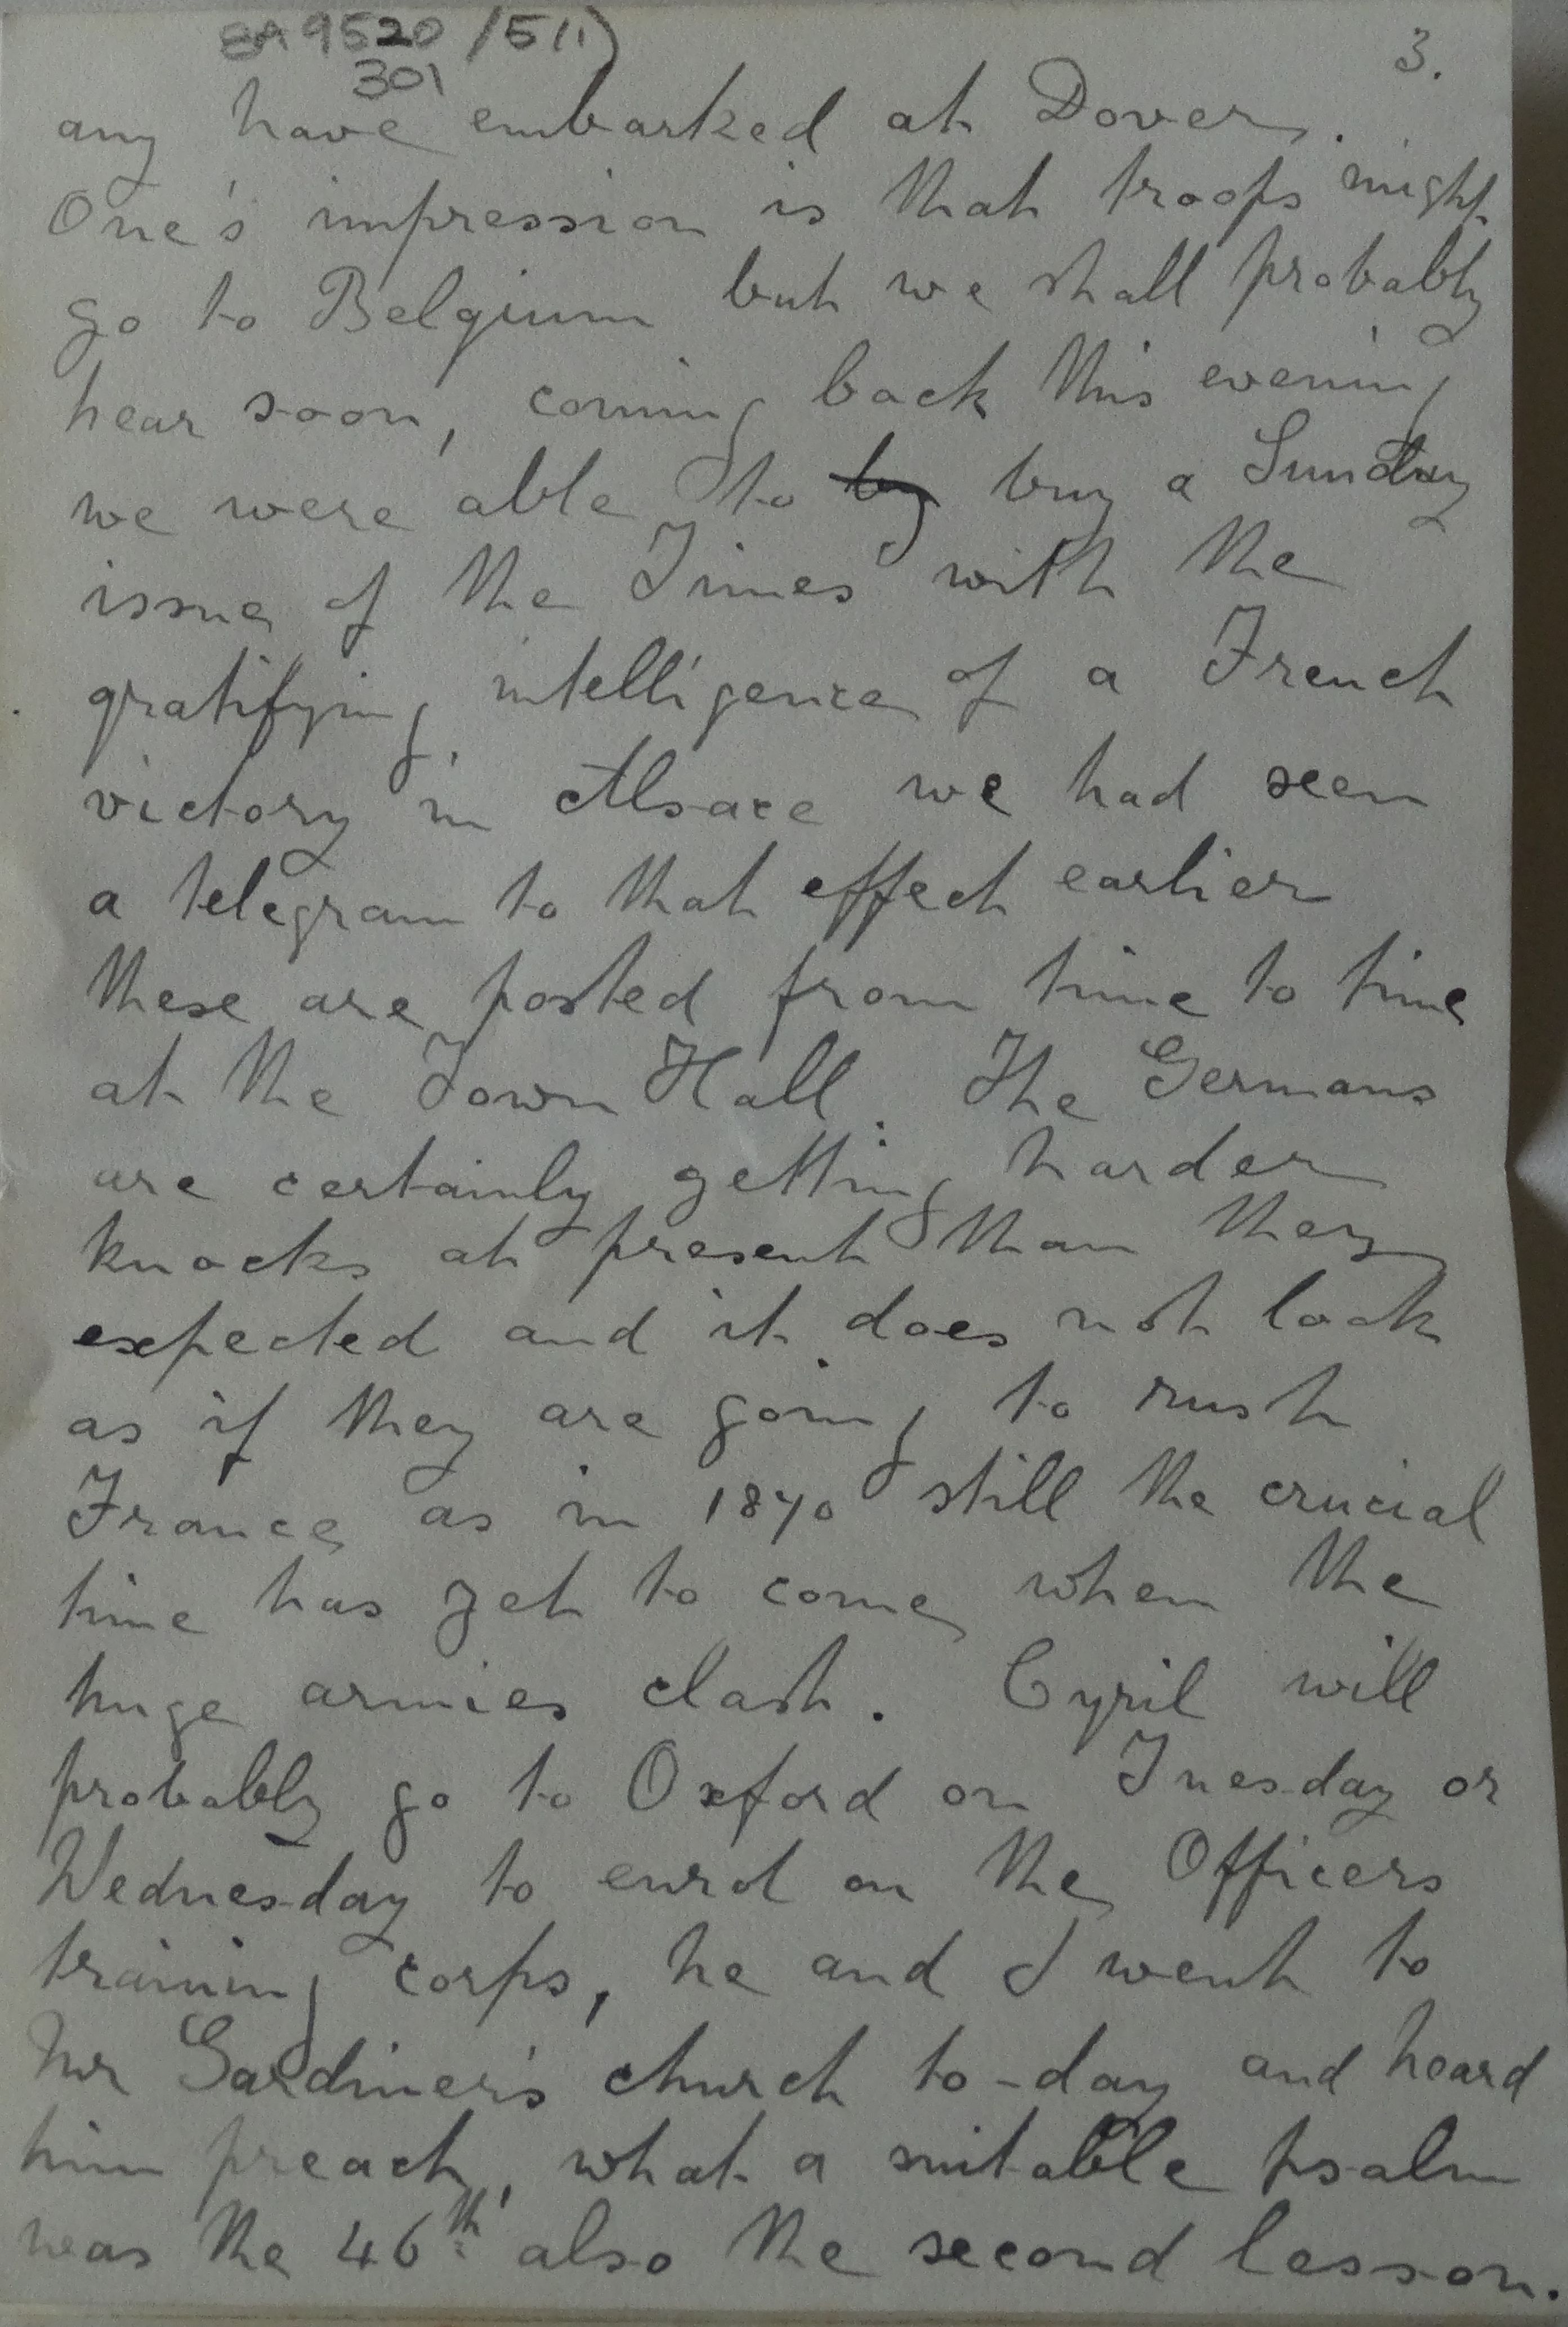 9520/5(1)
301
3.
any have embarked at Dover.
One's impression is that troops might
go to Belgium but we shall probably
hear soon, coming back this evening
we were able to by buy a Sunday
issue of the Times with the
gratifying intelligence of a French
victory in Alsace we had seen
a telegram to that effect earlier
these are posted from time to time
at the Town Hall. The Germans
are certainly getting harder
knocks at present than they
expected and it does not look
as if they are going to rush
France as in 1870 still the crucial
time has yet to come when the
huge armies clash. Cyril will
probably go to Oxford on Tuesday or
Wednesday to enrol on the Officers
training corps, he and I went to
Mr Gardiner's church to-day and heard
him preach, what a suitable psalm
was the 46th also the second lesson.